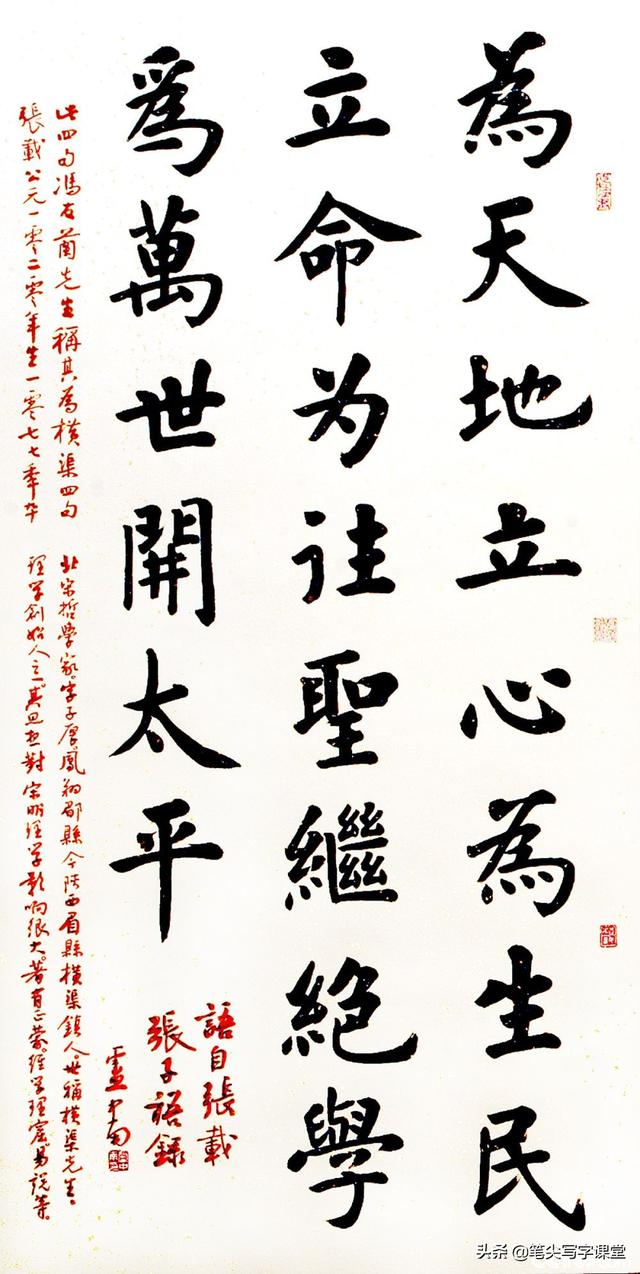 為天地立心為生民
立命为往聖繼絕學
爲萬世開太平
語自張載
張子語録
盧中南
此四句馮友蘭先生稱其為横渠四句
張載公元一零二零年生一零七七秊卒
北宋哲學家。字子厚。鳳翔郿縣今陕西眉縣横渠鎮人。世稱横渠先生。
理学創始人之一。其思想對宋明理学影响很大。著有正蒙。经学理窟。易説等。
头条 @笔尖写字课堂